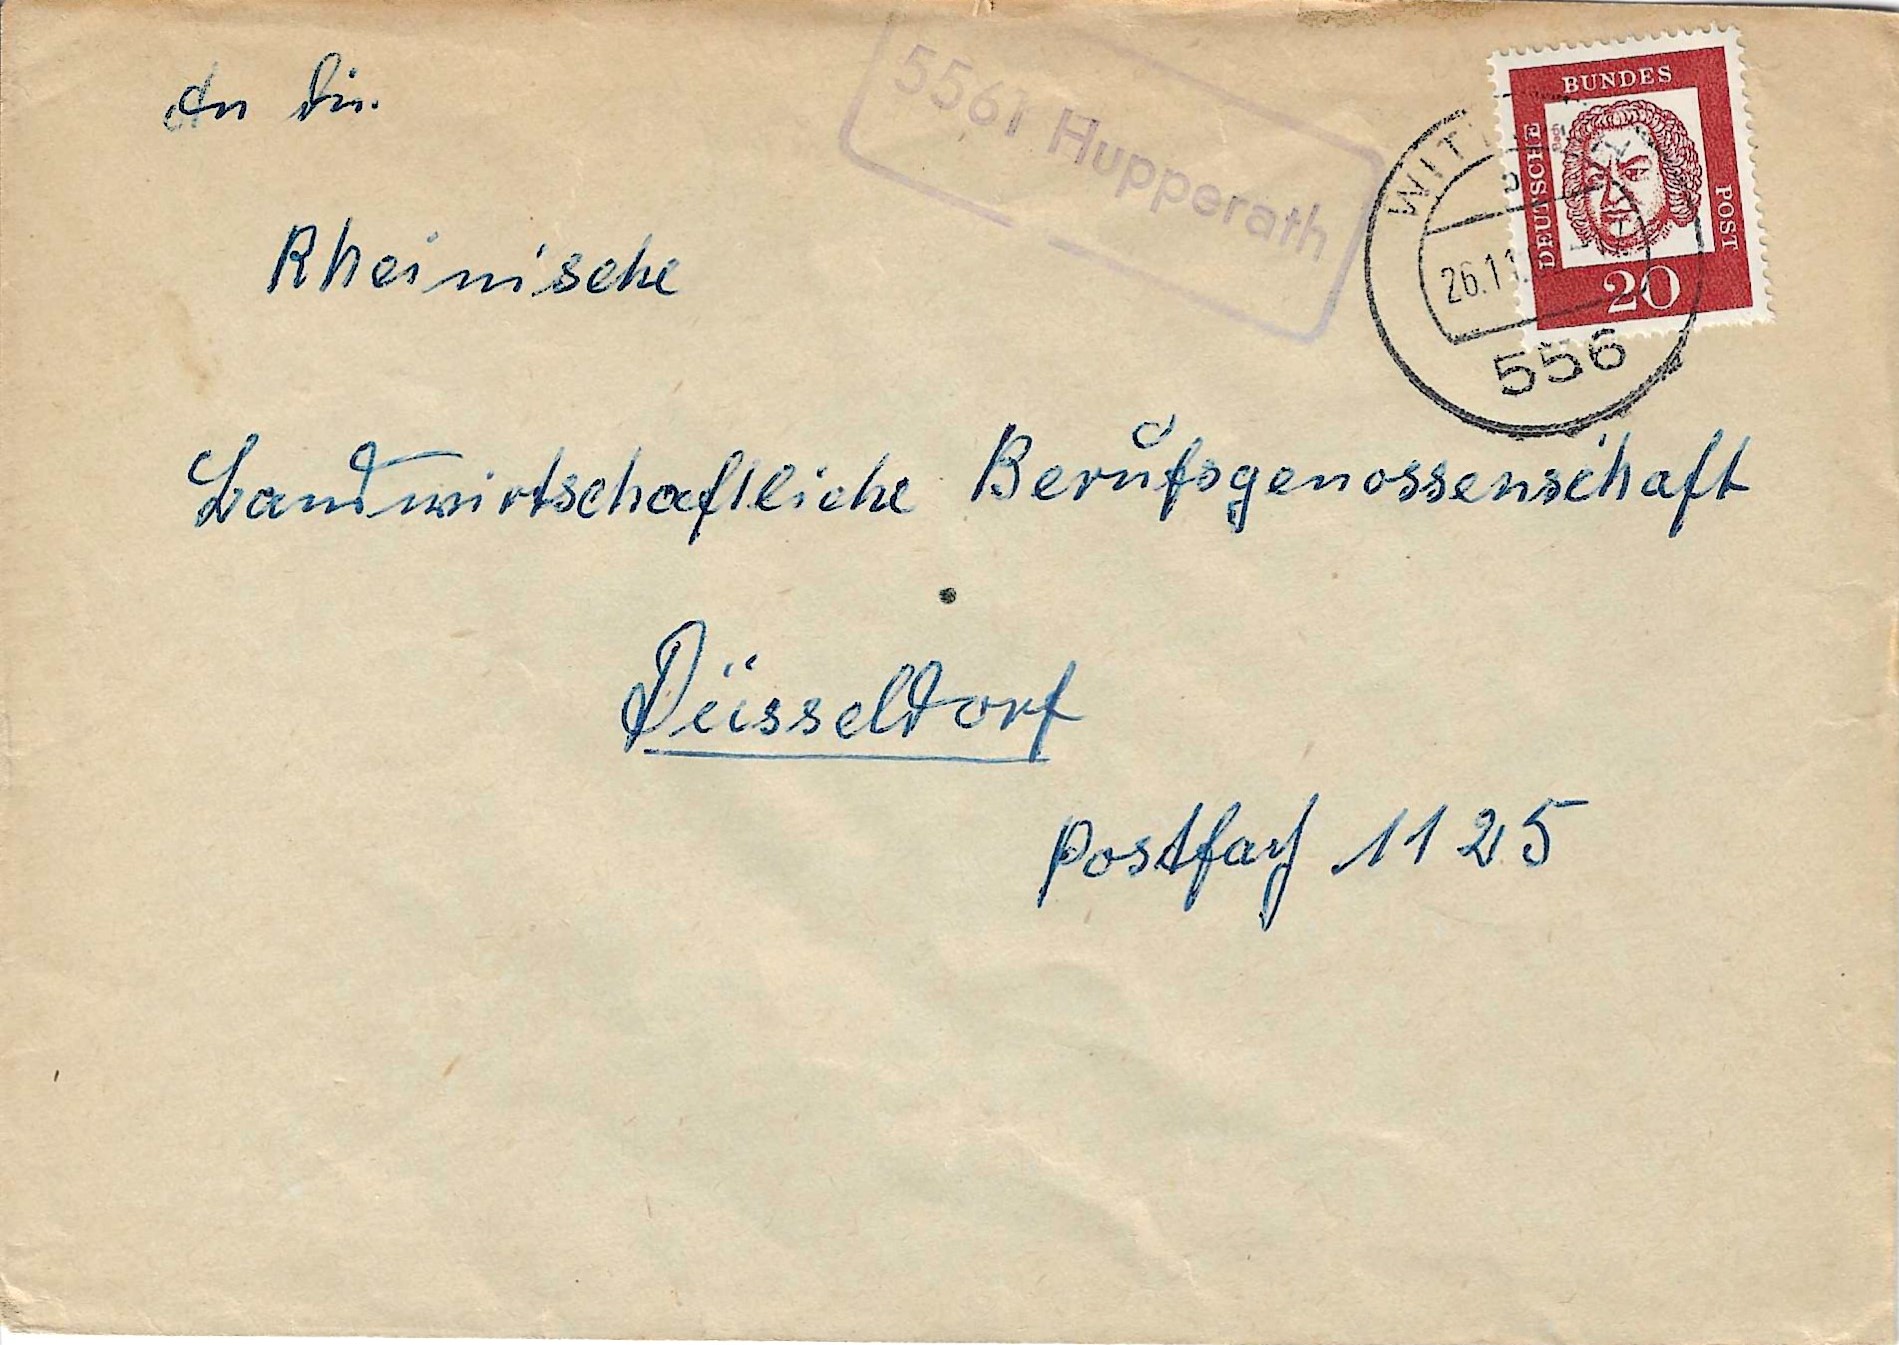 An die
5561 Hupperath
BUNDES
DEUTSCHE
POST
20
26.11
556
Rheinische
Landwirtschaftliche Berufsgenossenschaft
Düsseldorf
Postfach 1125